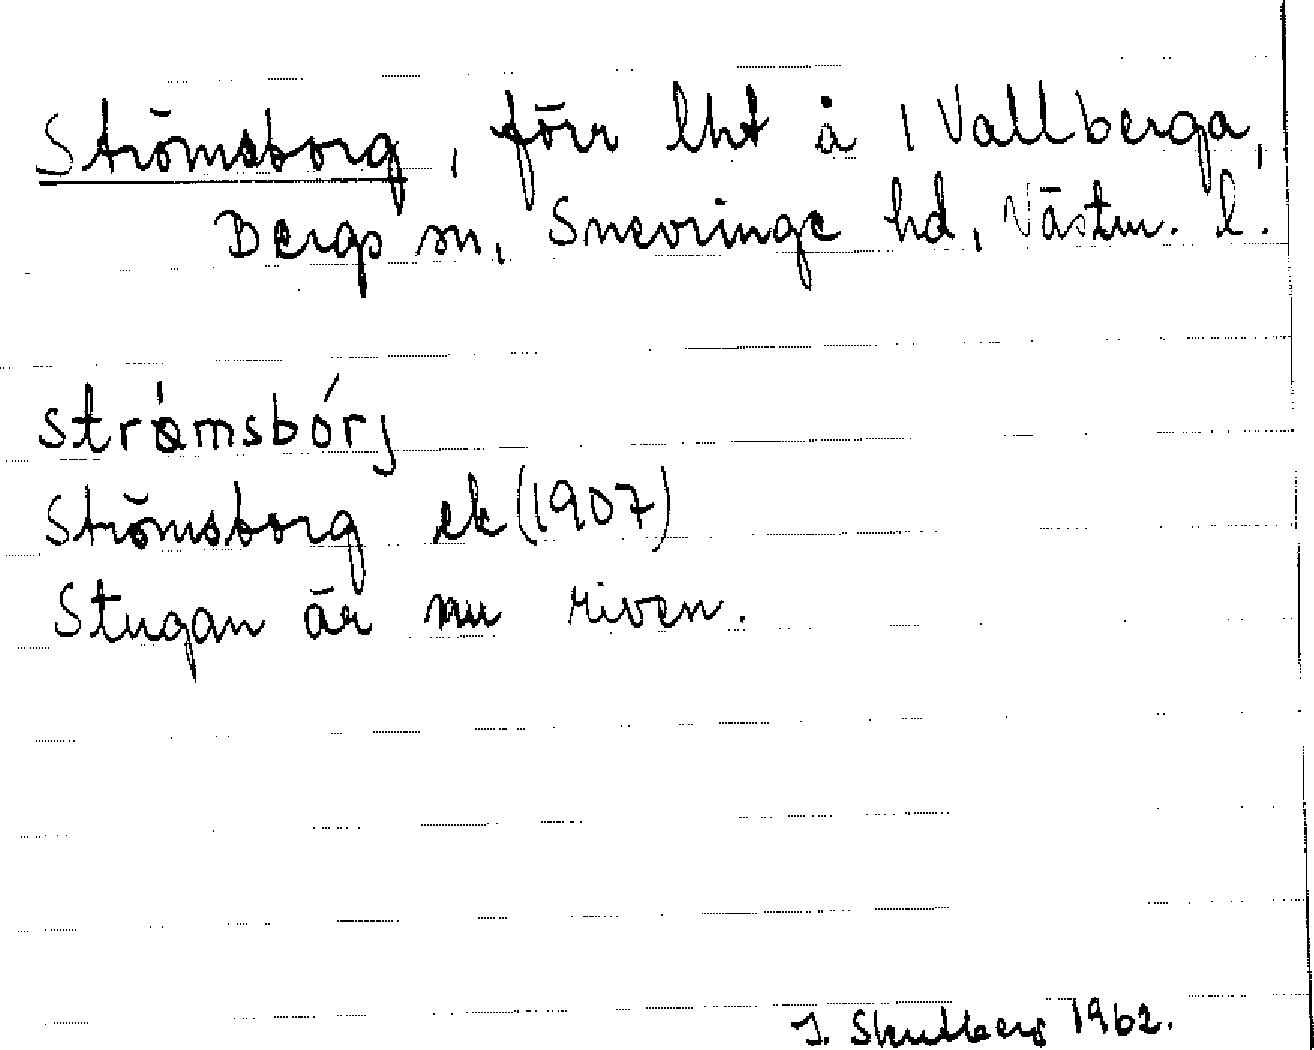 Strömsborg, förr lht å 1 Vallberga,
Bergs sn, Snevringe hd, Västm. l.
strømsbórj
Strömsborg ek (1907)
Stugan är nu riven.
J. Skullberg 1962.